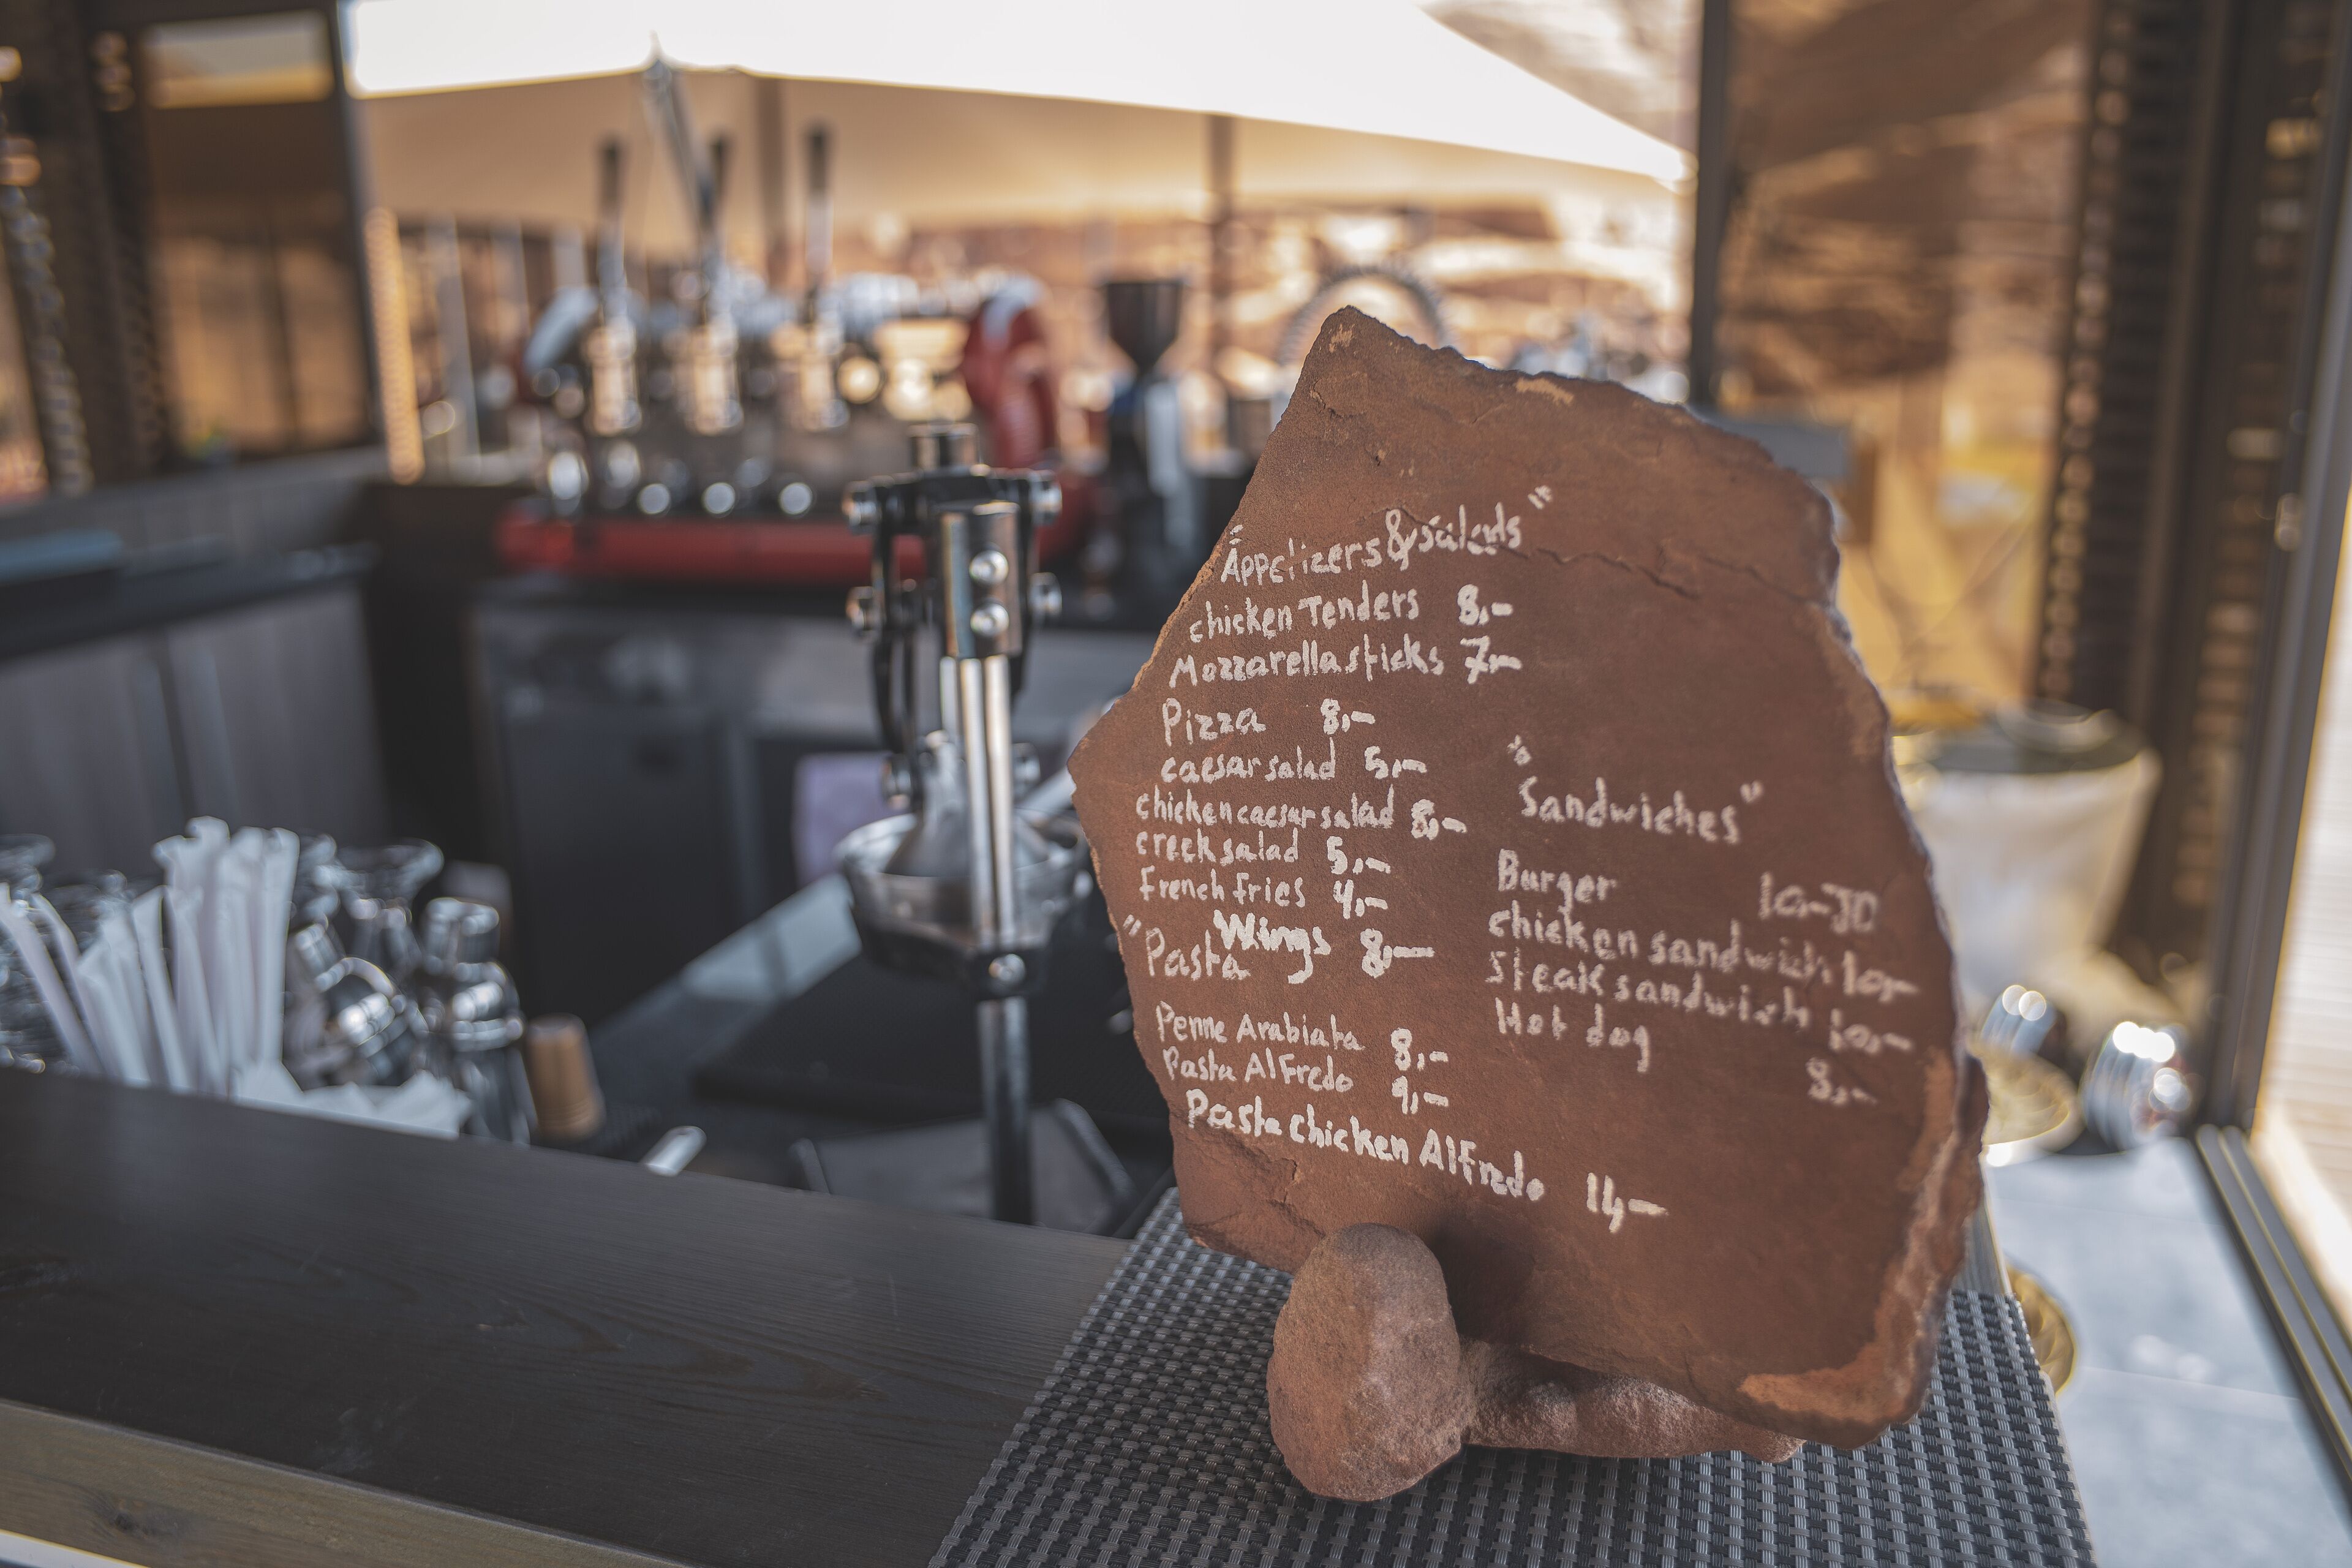 "Appetizers & salads"
chicken Tenders 8,-
Mozzarella sticks 7,-
Pizza 8,-
caesar salad 5,-
chicken caesar salad 8,-
creek salad 5,-
French fries 4,-
Wings 8,-
"Pasta
Penne Arabiata 8,-
Pasta Alfredo 9,-
Pasta chicken Alfredo 14,-
"Sandwiches"
Burger 10,-JD
chicken sandwich 10,-
steak sandwich 10,-
Hot dog 8,-